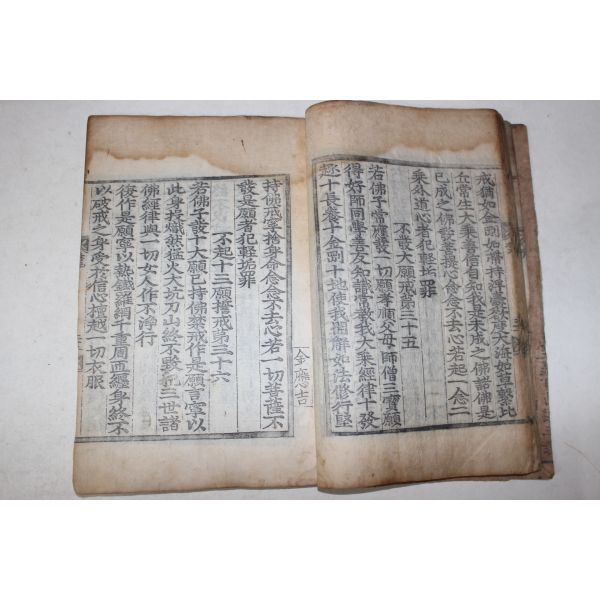 戒猶如金剛如帶持浮囊欲度大海如草繫比
丘常生大乘善信自知我是未成之佛諸佛是
已成之佛發菩提心念念不去心若起一念二
乘外道心者犯輕垢罪
不發大願戒第三十五
若佛子常應發一切願孝順父母師僧三寶願
得好師同學善友知識常教我大乘經律十發
趣十長養十金剛十地使我開解如法修行堅
持佛戒寧捨身命念念不去心若一切菩薩不
發是願者犯輕垢罪
不起十三願誓戒第三十六
若佛子發十大願已持佛禁戒作是願言寧以
此身投熾然猛火大坑刀山終不毀犯三世諸
佛經律與一切女人作不淨行
復作是願寧以熱鐵羅網千重周匝纏身終不
以破戒之身受於信心檀越一切衣服